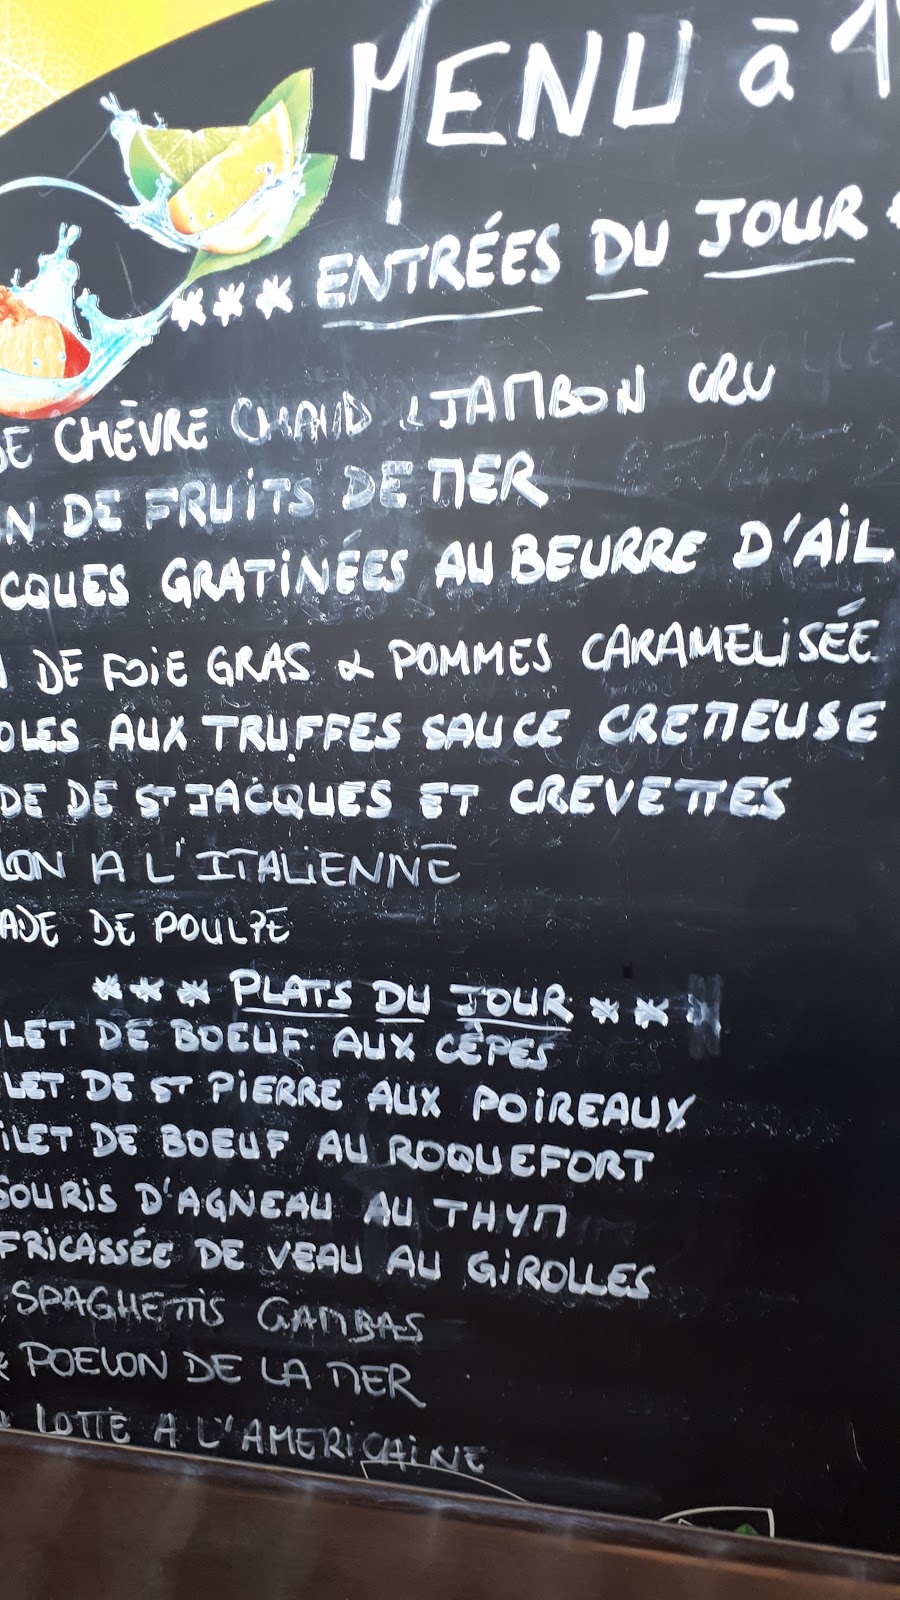 MENU à 1
*** ENTRÉES DU JOUR *
DE CHÈVRE CHAUD & JAMBON CRU
N DE FRUITS DE MER
CQUES GRATINÉES AU BEURRE D'AIL
DE FOIE GRAS & POMMES CARAMELISÉE
OLES AUX TRUFFES SAUCE CREMEUSE
DE DE ST JACQUES ET CREVETTES
LON A L'ITALIENNE
ADE DE POULPE
*** PLATS DU JOUR ***
LET DE BOEUF AUX CÊPES
LET DE ST PIERRE AUX POIREAUX
ILET DE BOEUF AU ROQUEFORT
SOURIS D'AGNEAU AU THYM
FRICASSÉE DE VEAU AU GIROLLES
SPAGHETTIS GAMBAS
* POELON DE LA MER
* LOTTE A L'AMERICAINE